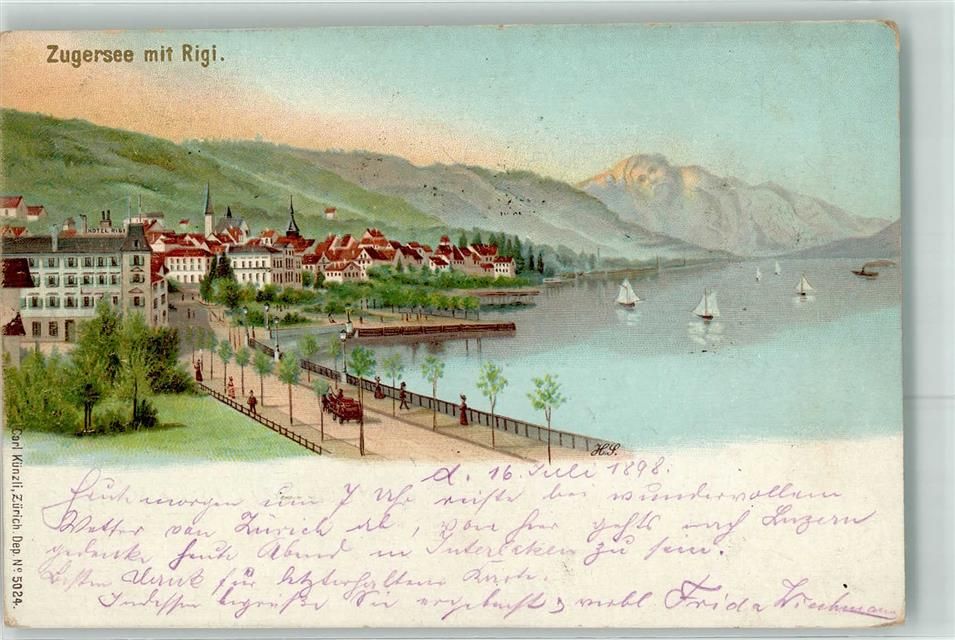 Zugersee mit Rigi.
HOTEL RIGI
H.S.
Carl Künzli, Zürich Dep. Nº 5024.
d. 16. Juli 1898.
Heute morgen um 7 Uhr reiste bei wundervollem
Wetter von Zürich ab, von hier gehts nach Luzern
gedenke heute Abend in Interlaken zu sein.
Besten Dank für letzterhaltene Karte.
Indessen begrüße Sie ergebenst Frida Wiechmann